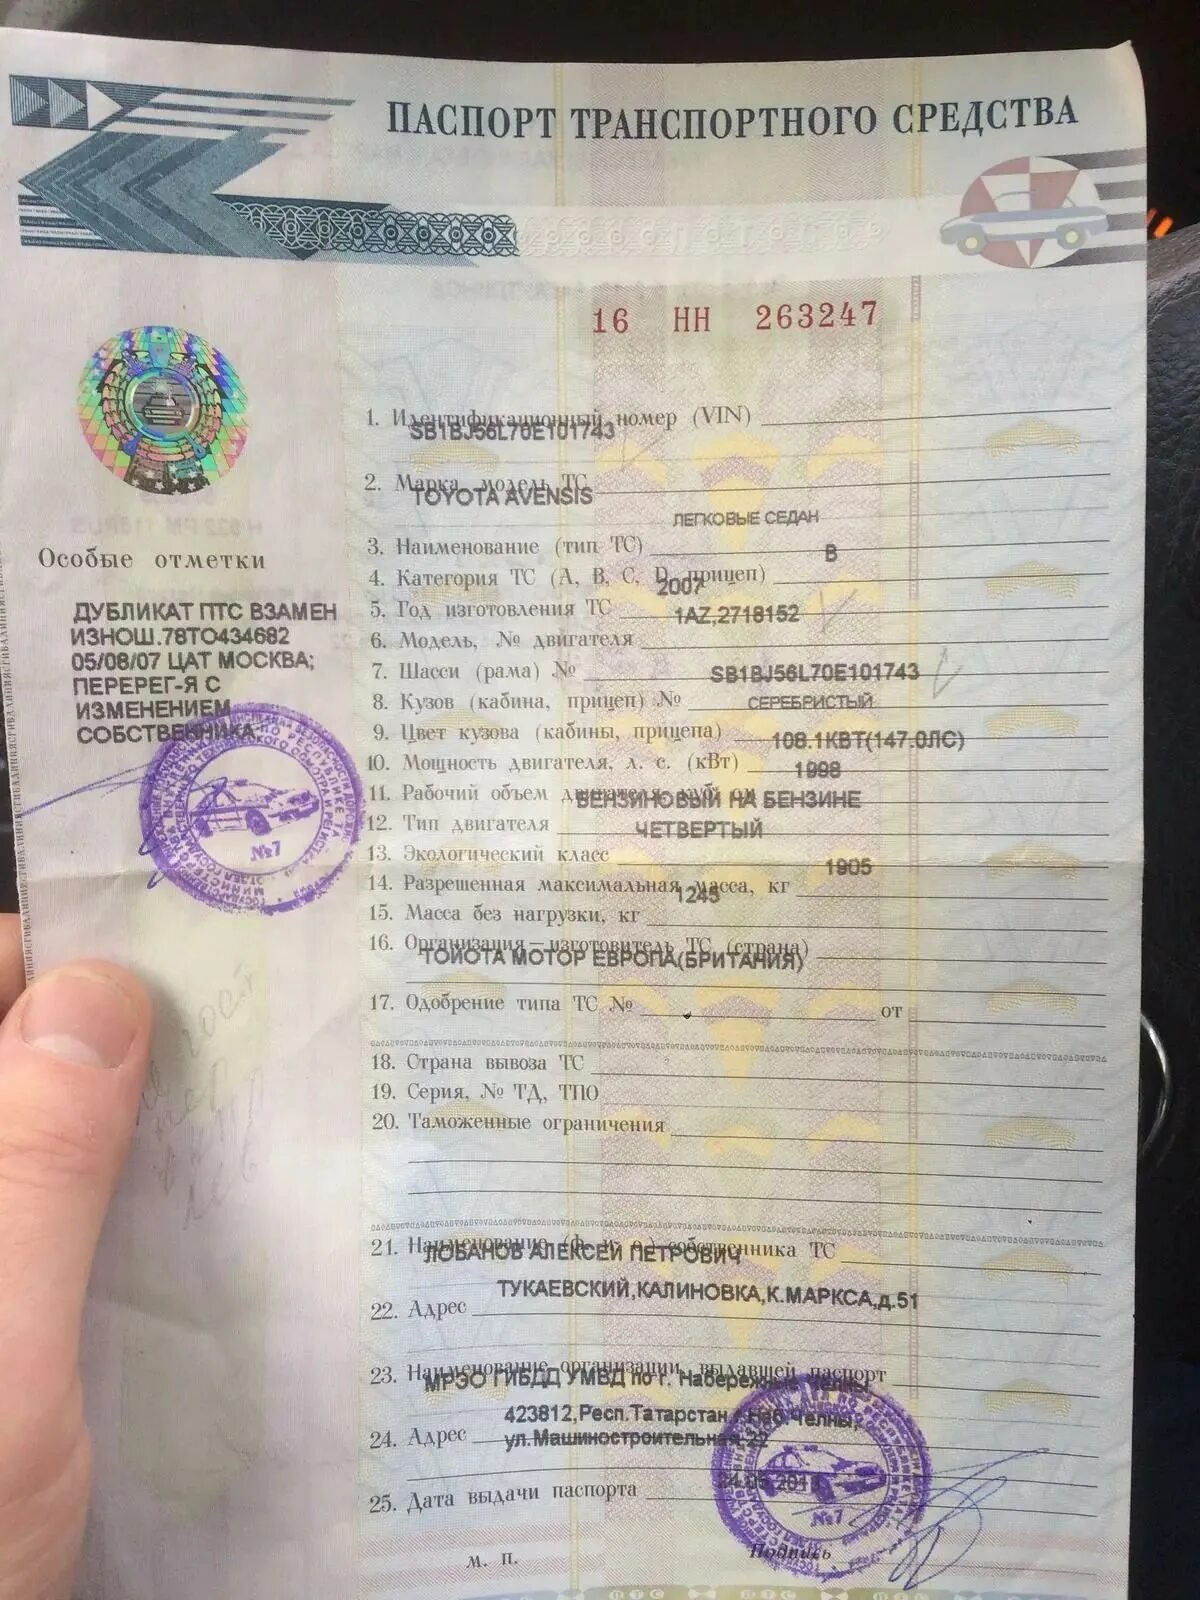 ПАСПОРТ ТРАНСПОРТНОГО СРЕДСТВА
16 НН 263247
Особые отметки
ДУБЛИКАТ ПТС ВЗАМЕН
ИЗНОШ.78ТО434682
05/08/07 ЦАТ МОСКВА;
ПЕРЕРЕГ-Я С
ИЗМЕНЕНИЕМ
СОБСТВЕННИКА;
№7
1. Идентификационный номер (VIN)
SB1BJ56L70E101743
2. Марка, модель ТС
TOYOTA AVENSIS
ЛЕГКОВЫЕ СЕДАН
3. Наименование (тип ТС)
B
4. Категория ТС (А, В, С, D, прицеп)
2007
5. Год изготовления ТС
1AZ,2718152
6. Модель, № двигателя
7. Шасси (рама) №
SB1BJ56L70E101743
8. Кузов (кабина, прицеп) №
СЕРЕБРИСТЫЙ
9. Цвет кузова (кабины, прицепа)
108.1КВТ(147.0ЛС)
10. Мощность двигателя, л. с. (кВт)
1998
11. Рабочий объем двигателя, куб. см
БЕНЗИНОВЫЙ НА БЕНЗИНЕ
12. Тип двигателя
ЧЕТВЕРТЫЙ
13. Экологический класс
1905
14. Разрешенная максимальная масса, кг
1245
15. Масса без нагрузки, кг
16. Организация—изготовитель ТС (страна)
ТОЙОТА МОТОР ЕВРОПА(БРИТАНИЯ)
17. Одобрение типа ТС № от
18. Страна вывоза ТС
19. Серия, № ТД, ТПО
20. Таможенные ограничения
21. Наименование (ф. и. о.) собственника ТС
ЛОБАНОВ АЛЕКСЕЙ ПЕТРОВИЧ
ТУКАЕВСКИЙ,КАЛИНОВКА,К.МАРКСА,д.51
22. Адрес
23. Наименование организации, выдавшей паспорт
МРЭО ГИБДД УМВД по г. Набережные Челны
423812,Респ.Татарстан,г.Наб.Челны,
24. Адрес
ул.Машиностроительная,22
25. Дата выдачи паспорта
№7
м. п.
Подпись